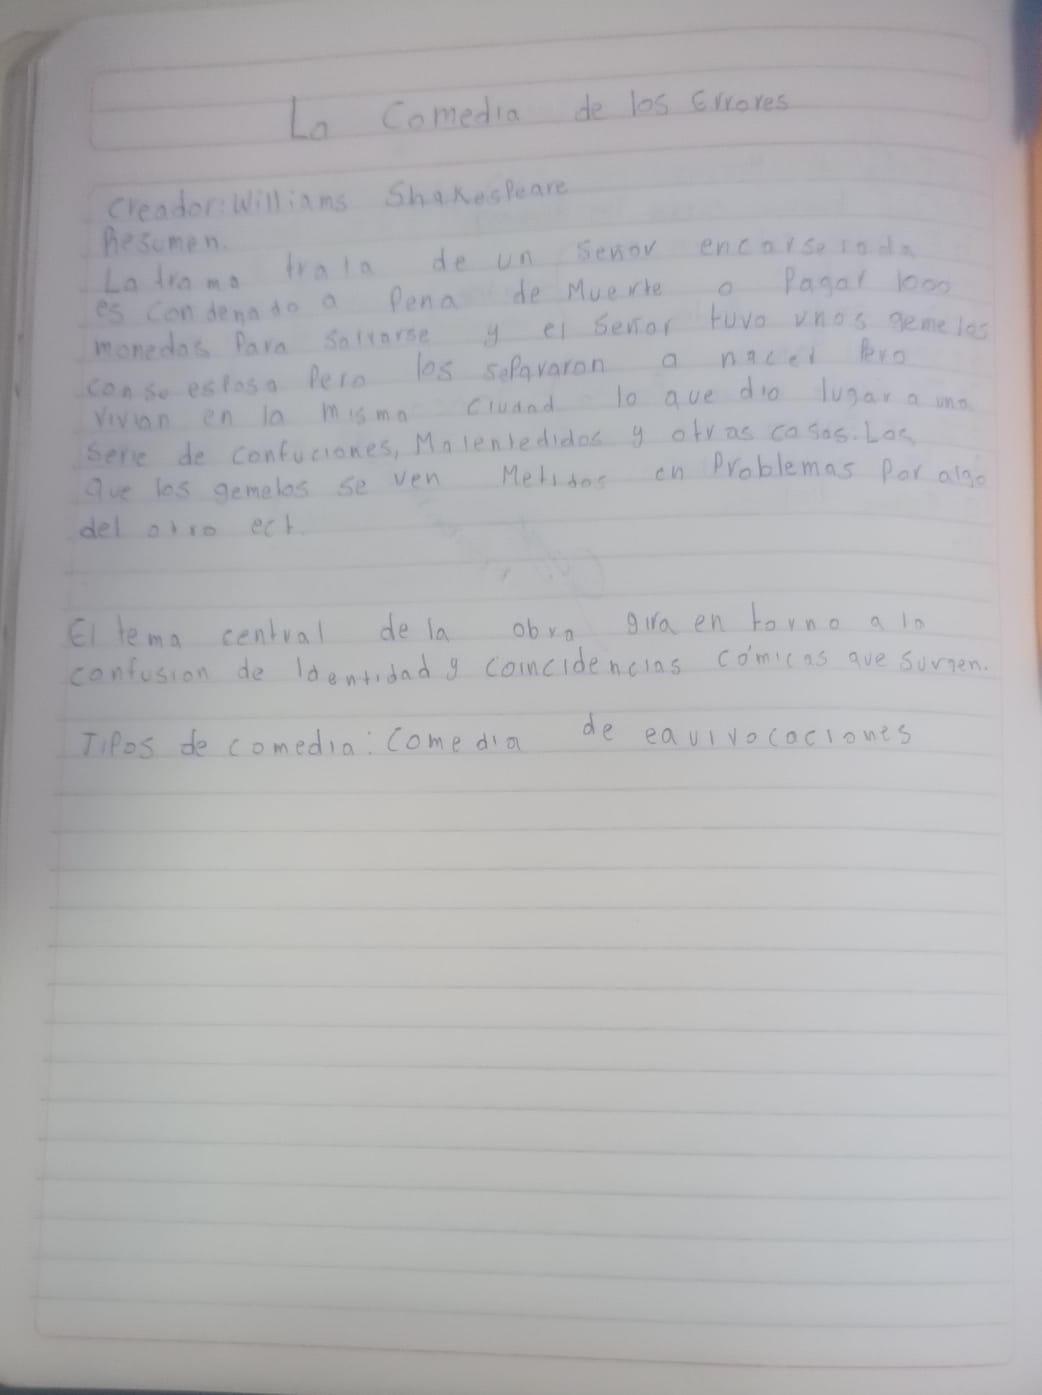 La Comedia de los Errores
Creador: Williams Shakespeare
Resumen.
La trama trata de un señor encarselado
es condenado a Pena de Muerte o Pagar 1000
monedas Para salvarse y el señor tuvo unos gemelos
con su esposa Pero los separaron a nacer Pero
vivian en la misma ciudad lo que dio lugar a una
serie de confuciones, Malentedidos y otras cosas. Los
que los gemelos se ven Metidos en Problemas Por algo
del otro ect.
El tema central de la obra gira en torno a la
confusion de Identidad y coincidencias cómicas que surgen.
Tipos de comedia: Comedia de equivocaciones